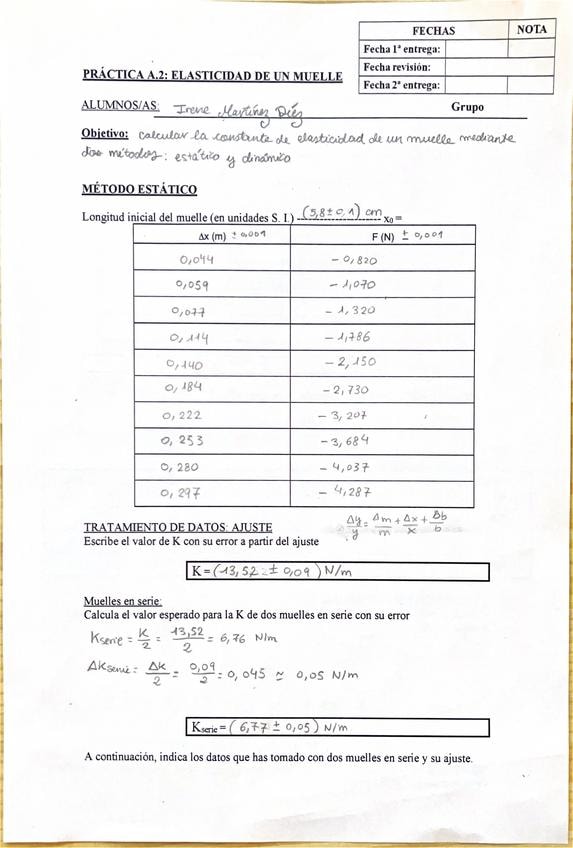 FECHAS NOTA
Fecha 1ª entrega:
Fecha revisión:
Fecha 2ª entrega:
PRÁCTICA A.2: ELASTICIDAD DE UN MUELLE
ALUMNOS/AS: Irene Martínez Díez Grupo
Objetivo: calcular la constante de elasticidad de un muelle mediante
dos métodos: estático y dinámico
MÉTODO ESTÁTICO
Longitud inicial del muelle (en unidades S. I.) (5,8 ± 0,1) cm x₀ =
Δx (m) ± 0,001 F (N) ± 0,001
0,044 - 0,820
0,059 - 1,070
0,077 - 1,320
0,114 - 1,786
0,140 - 2,150
0,184 - 2,730
0,222 - 3,207
0,253 - 3,684
0,280 - 4,037
0,297 - 4,287
TRATAMIENTO DE DATOS: AJUSTE Δy/y = Δm/m + Δx/x + Δb/b
Escribe el valor de K con su error a partir del ajuste
K = (13,52 ± 0,09) N/m
Muelles en serie:
Calcula el valor esperado para la K de dos muelles en serie con su error
Kserie = K/2 = 13,52/2 = 6,76 N/m
ΔKserie = Δk/2 = 0,09/2 = 0,045 ≃ 0,05 N/m
Kserie = (6,77 ± 0,05) N/m
A continuación, indica los datos que has tomado con dos muelles en serie y su ajuste.